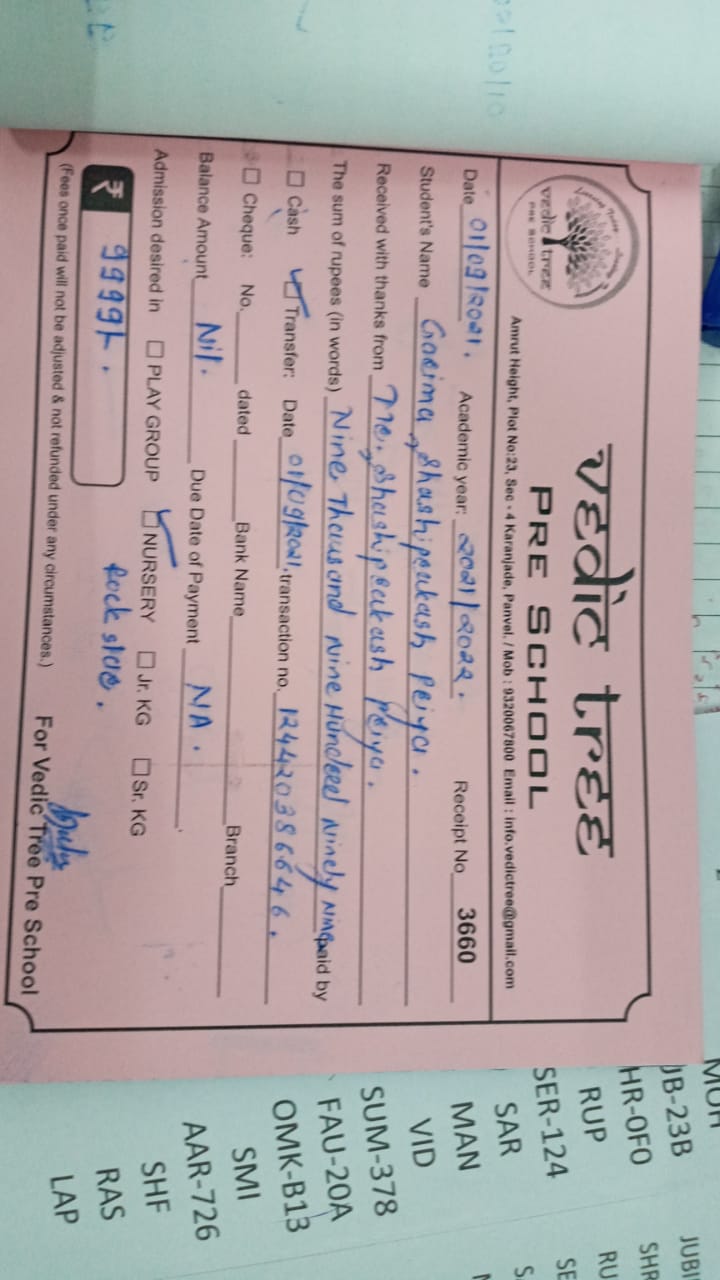 vedic tree
PRE SCHOOL
vedic tree
PRE SCHOOL
Amrut Height, Plot No:23, Sec - 4 Karanjade, Panvel. / Mob : 9320067800 Email : info.vedictree@gmail.com
Date 01/09/2021. Academic year: 2021/2022. Receipt No 3660
Student's Name Garima Shashiprakash Peiya.
Received with thanks from Mr. Shashiprakash Peiya.
The sum of rupees (in words) Nine Thousand Nine Hundred Ninety Nine paid by
Cash Transfer: Date 01/09/2021, transaction no. 124420386646.
Cheque: No. dated Bank Name Branch
Balance Amount Nil. Due Date of Payment NA.
Admission desired in PLAY GROUP NURSERY Jr. KG Sr. KG
₹ 9999/-. Rock star.
(Fees once paid will not be adjusted & not refunded under any circumstances.) For Vedic Tree Pre School
JB-23B
HR-0F0
RUP
SER-124
SAR
MAN
VID
SUM-378
FAU-20A
OMK-B13
SMI
AAR-726
SHF
RAS
LAP